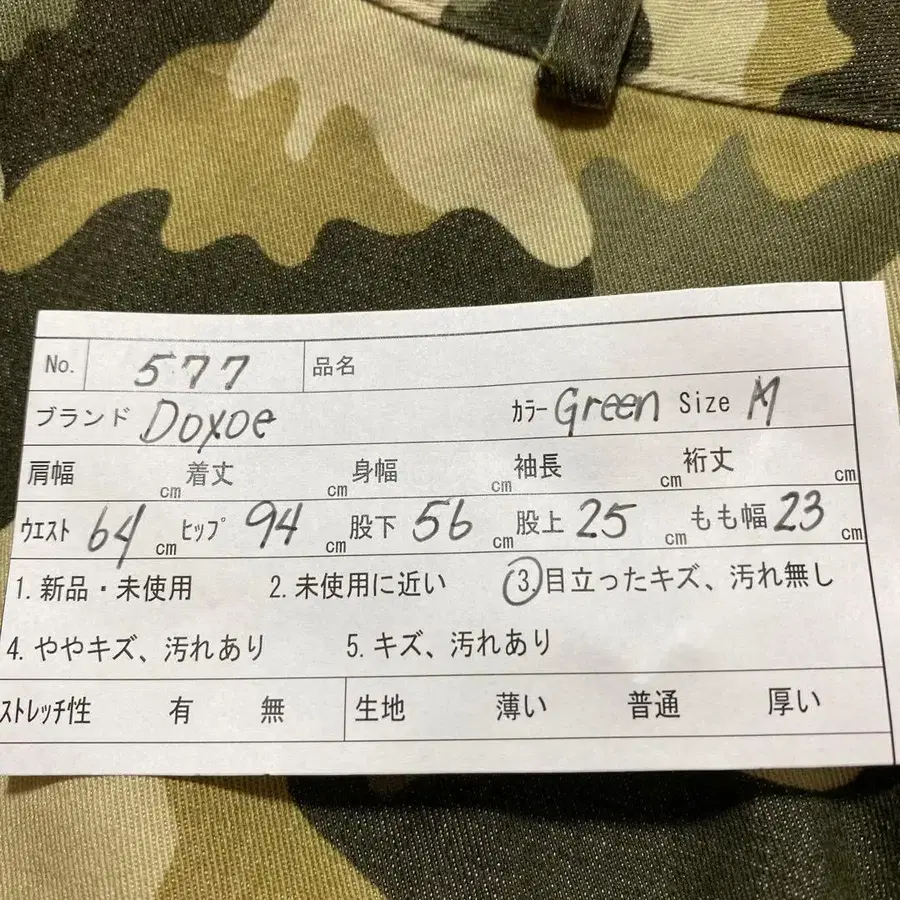 No. 577 品名
ブランド Doxoe カラー Green Size M
肩幅 cm 着丈 cm 身幅 cm 袖長 cm 裄丈 cm
ウエスト 64 cm ヒップ 94 cm 股下 56 cm 股上 25 cm もも幅 23 cm
1. 新品・未使用 2. 未使用に近い 3. 目立ったキズ、汚れ無し
4. ややキズ、汚れあり 5. キズ、汚れあり
ストレッチ性 有 無 生地 薄い 普通 厚い